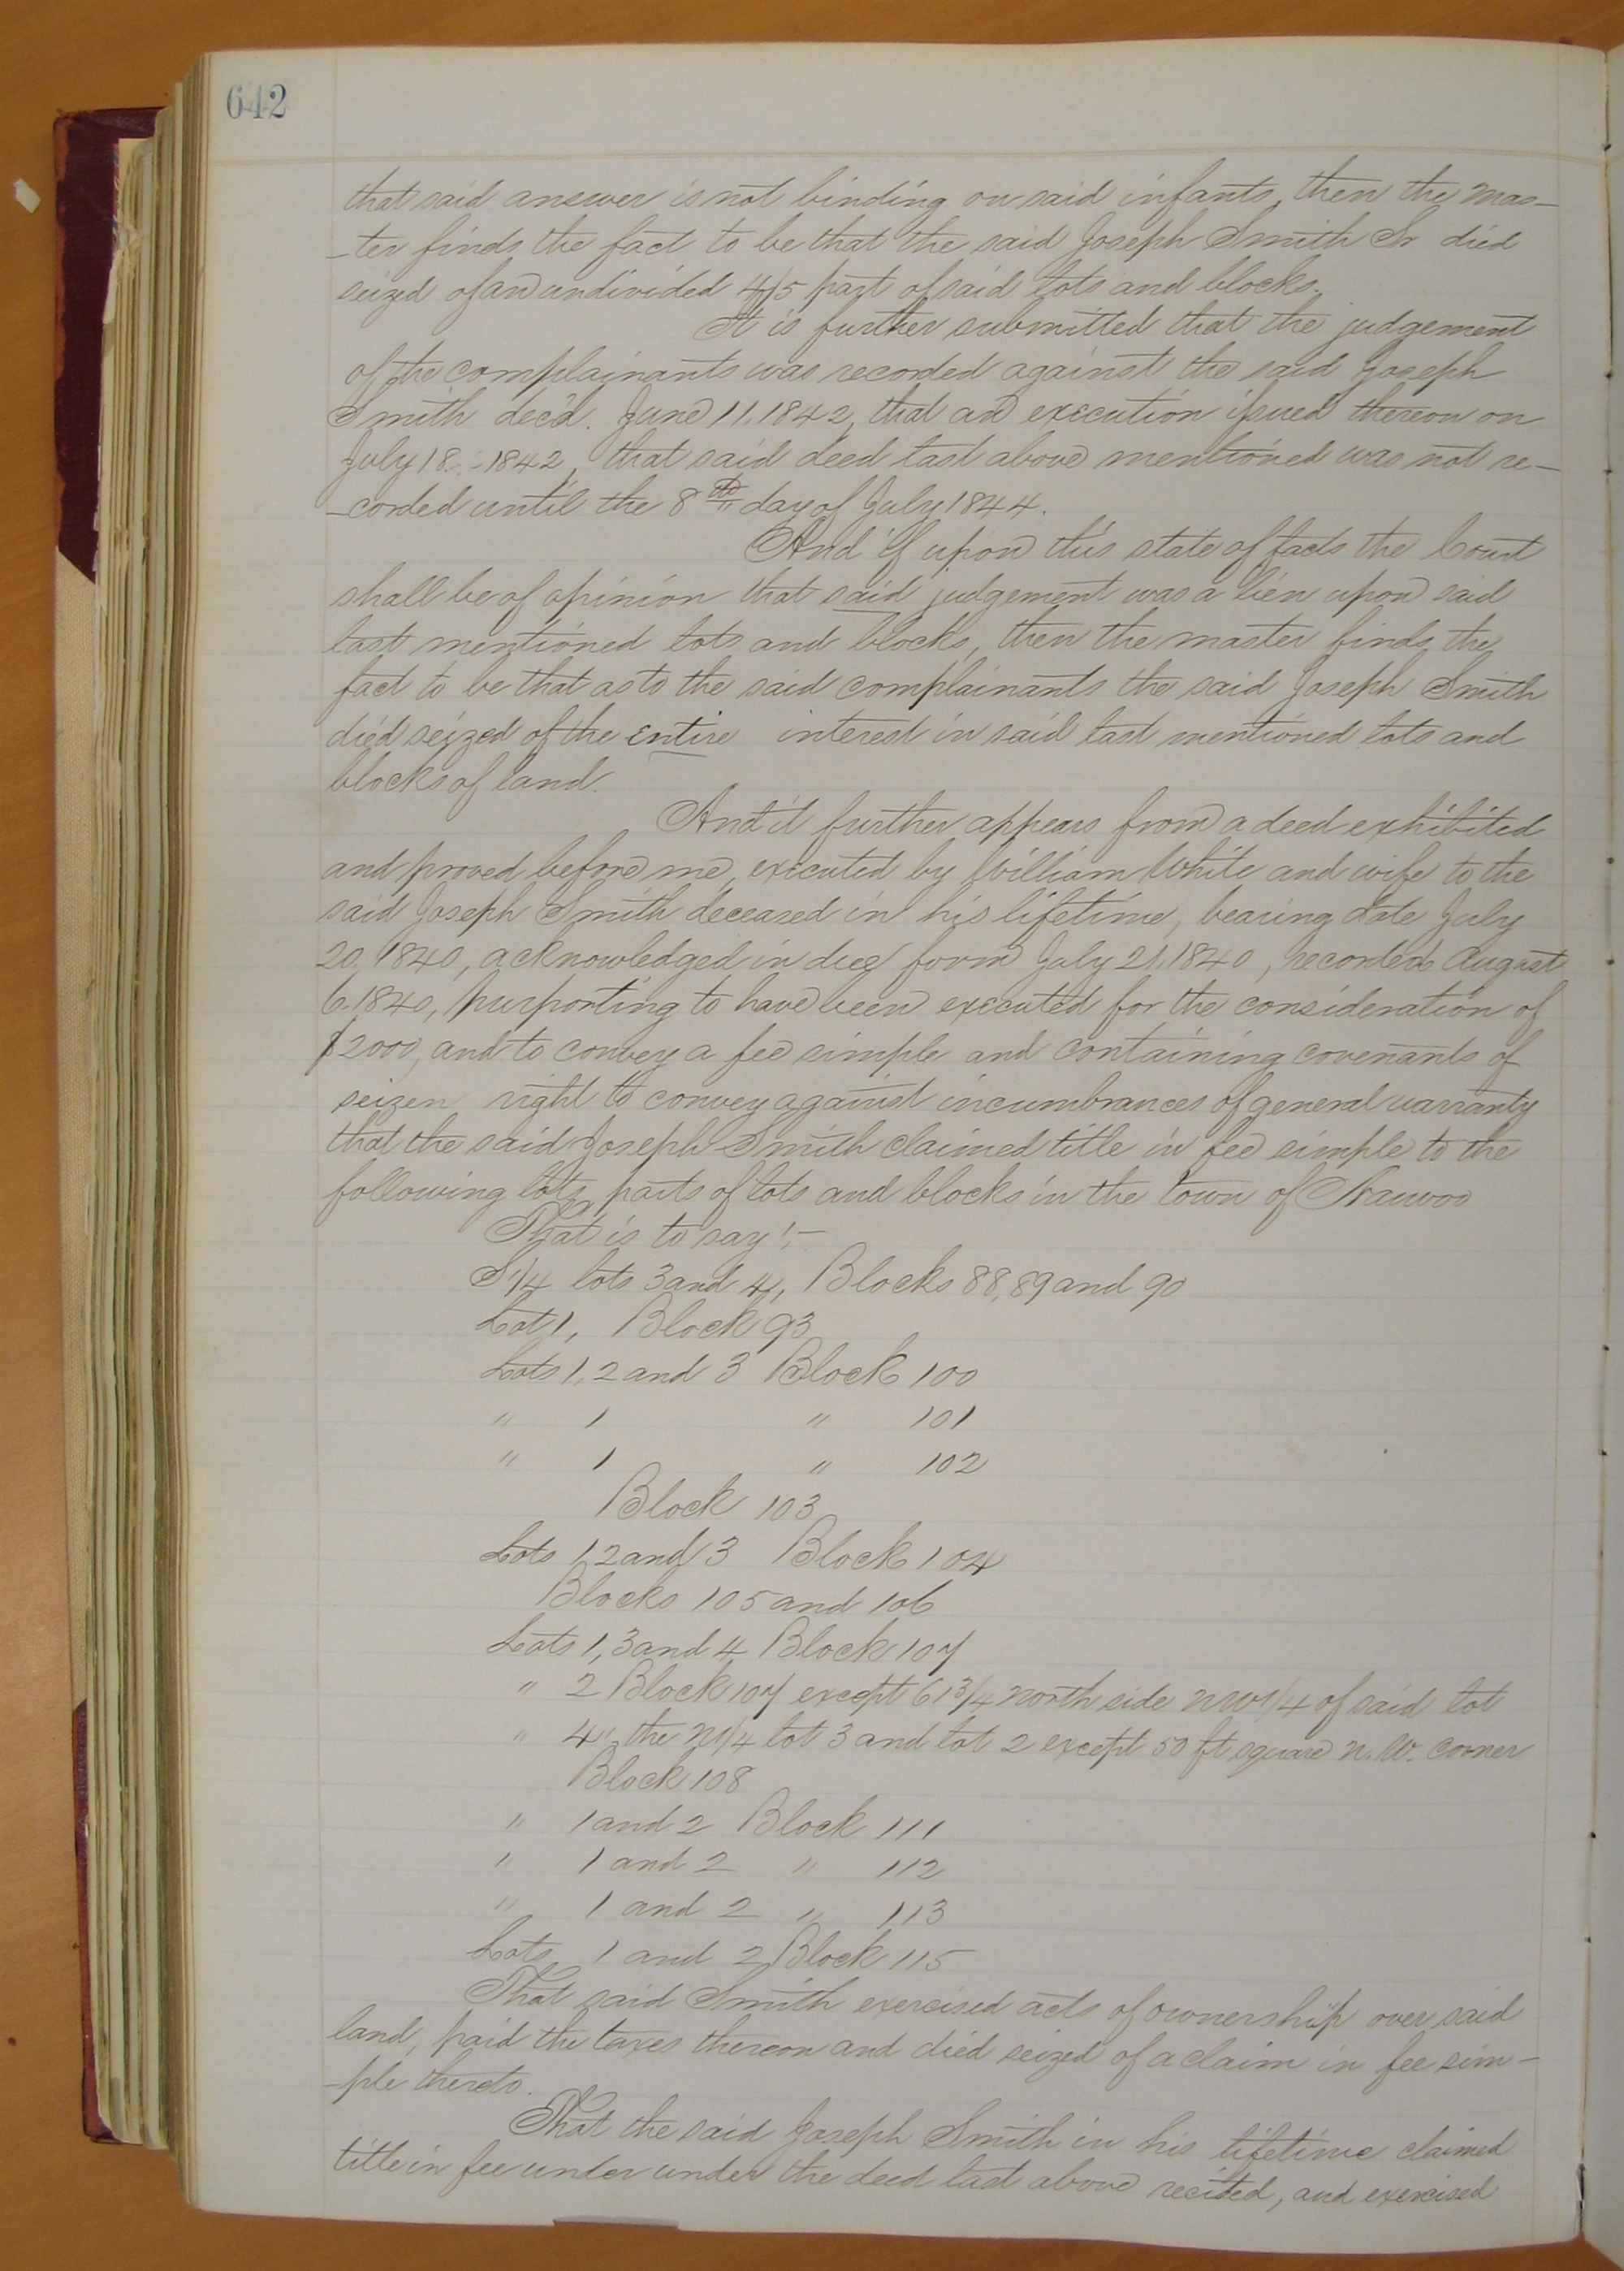 642
that said answer is not binding on said infants, then the mas-
-ter finds the fact to be that the said Joseph Smith Sr died
seized of an undivided 4/5 part of said lots and blocks.
It is further submitted that the judgement
of the complainants was recorded against the said Joseph
Smith dec'd. June 11, 1842, that an execution issued thereon on
July 18. 1842, that said deed last above mentioned was not re-
-corded until the 8th day of July 1844.
And if upon this state of facts the Court
shall be of opinion that said judgement was a lien upon said
last mentioned lots and blocks, then the master finds the
fact to be that as to the said complainants the said Joseph Smith
died seized of the entire interest in said last mentioned lots and
blocks of land.
And it further appears from a deed exhibited
and proved before me, executed by William White and wife to the
said Joseph Smith deceased in his lifetime, bearing date July
20, 1840, acknowledged in due form July 21, 1840, recorded August
6. 1840, purporting to have been executed for the consideration of
$2000, and to convey a fee simple and containing covenants of
seizen right to convey against incumbrances of general warranty
that the said Joseph Smith claimed title in fee simple to the
following lots, parts of lots and blocks in the town of Nauvoo
That is to say:-
S 1/4 lots 3 and 4, Blocks 88, 89 and 90
Lot 1, Block 93
Lots 1, 2 and 3 Block 100
" 1 " 101
" 1 " 102
Block 103
Lots 1, 2 and 3 Block 104
Blocks 105 and 106
Lots 1, 3 and 4 Block 107
" 2 Block 107 except 6 13/4 north side N W 1/4 of said lot
" 4 " the N 1/4 lot 3 and lot 2 except 50 ft square N. W. corner
Block 108
" 1 and 2 Block 111
" 1 and 2 " 112
" 1 and 2 " 113
Lots 1 and 2 Block 115
That said Smith exercised acts of ownership over said
land, paid the taxes thereon and died seized of a claim in fee sim-
-ple thereto.
That the said Joseph Smith in his lifetime claimed
title in fee under under the deed last above recited, and exercised